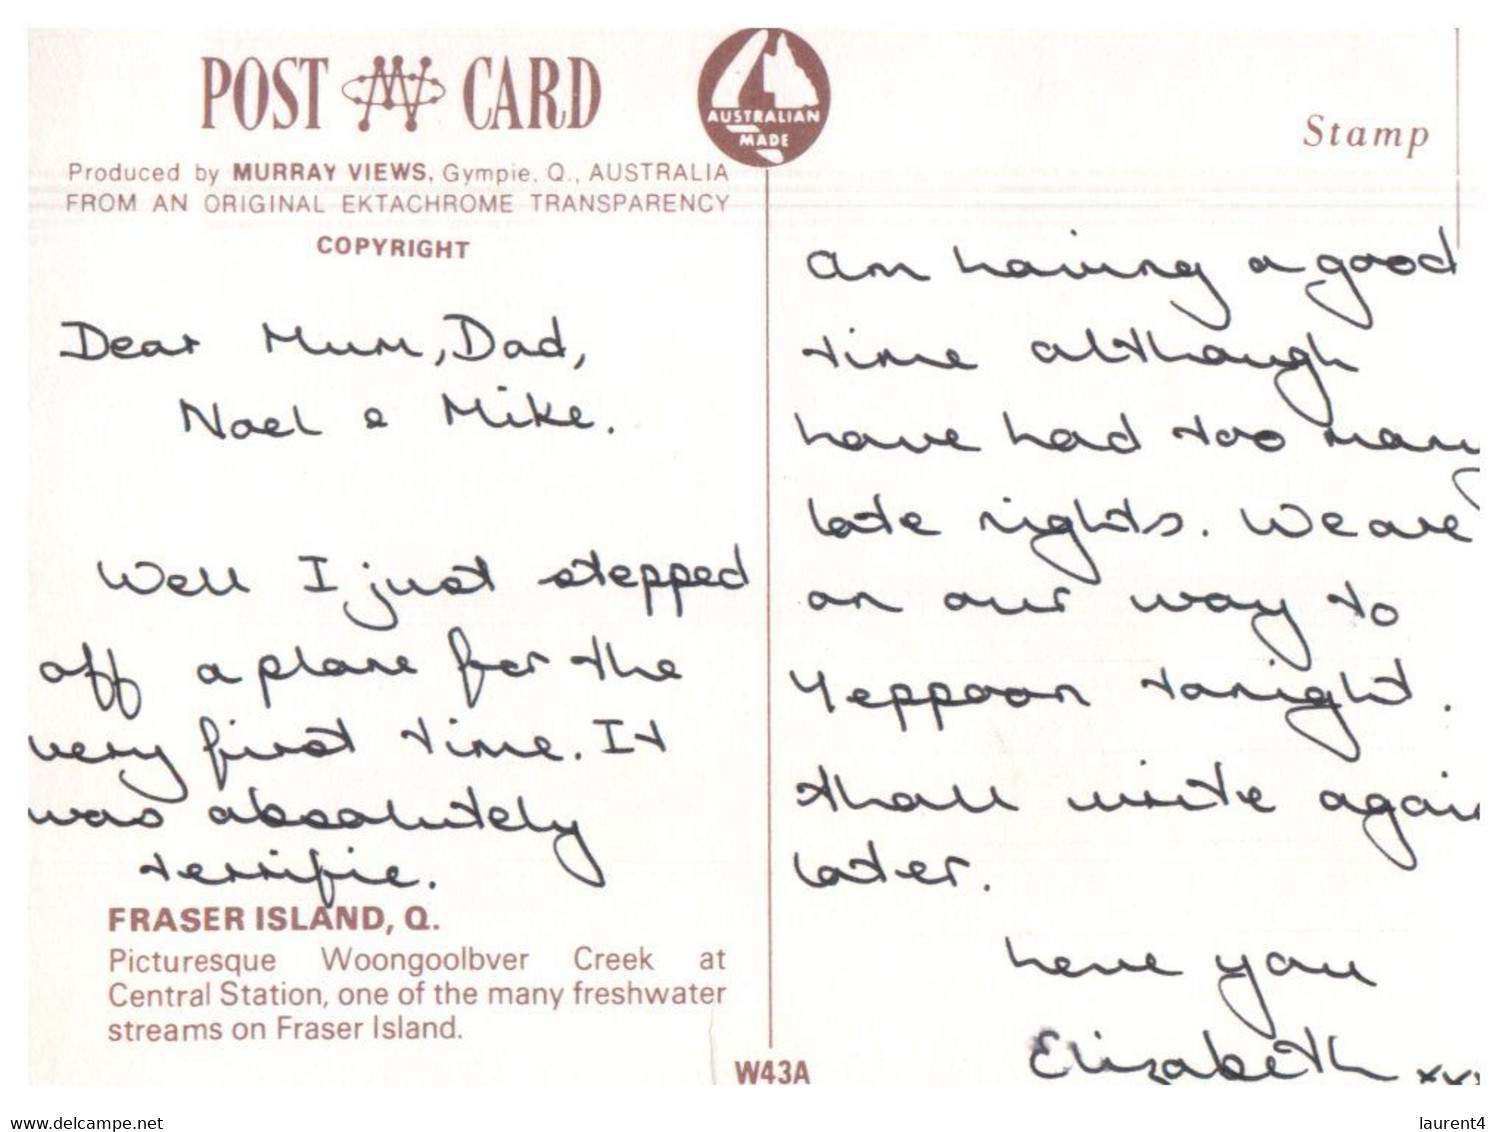 POST CARD
AUSTRALIAN
MADE
Stamp
Produced by MURRAY VIEWS, Gympie, Q., AUSTRALIA
FROM AN ORIGINAL EKTACHROME TRANSPARENCY
COPYRIGHT
Dear Mum, Dad,
Noel & Mike.
Well I just stepped
off a plane for the
very first time. It
was absolutely
terrific.
FRASER ISLAND, Q.
Picturesque Woongoolbver Creek at
Central Station, one of the many freshwater
streams on Fraser Island.
W43A
am having a good
time although
have had too many
late nights. We are
on our way to
Yeppoon tonight.
shall write again
later.
love you
Elizabeth xxx
www.delcampe.net
laurent4